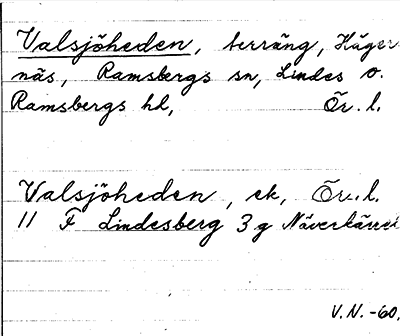 Valsjöheden, terräng, Häger-
näs, Ramsbergs sn, Lindes o.
Ramsbergs hd, Ör. l.
Valsjöheden, ek, Ör. l.
11 F Lindesberg 3 g Näverkärret
V.N. -60.